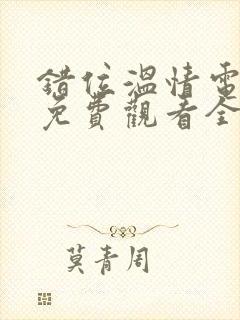 錯位溫情電
免費觀看全
莫青周